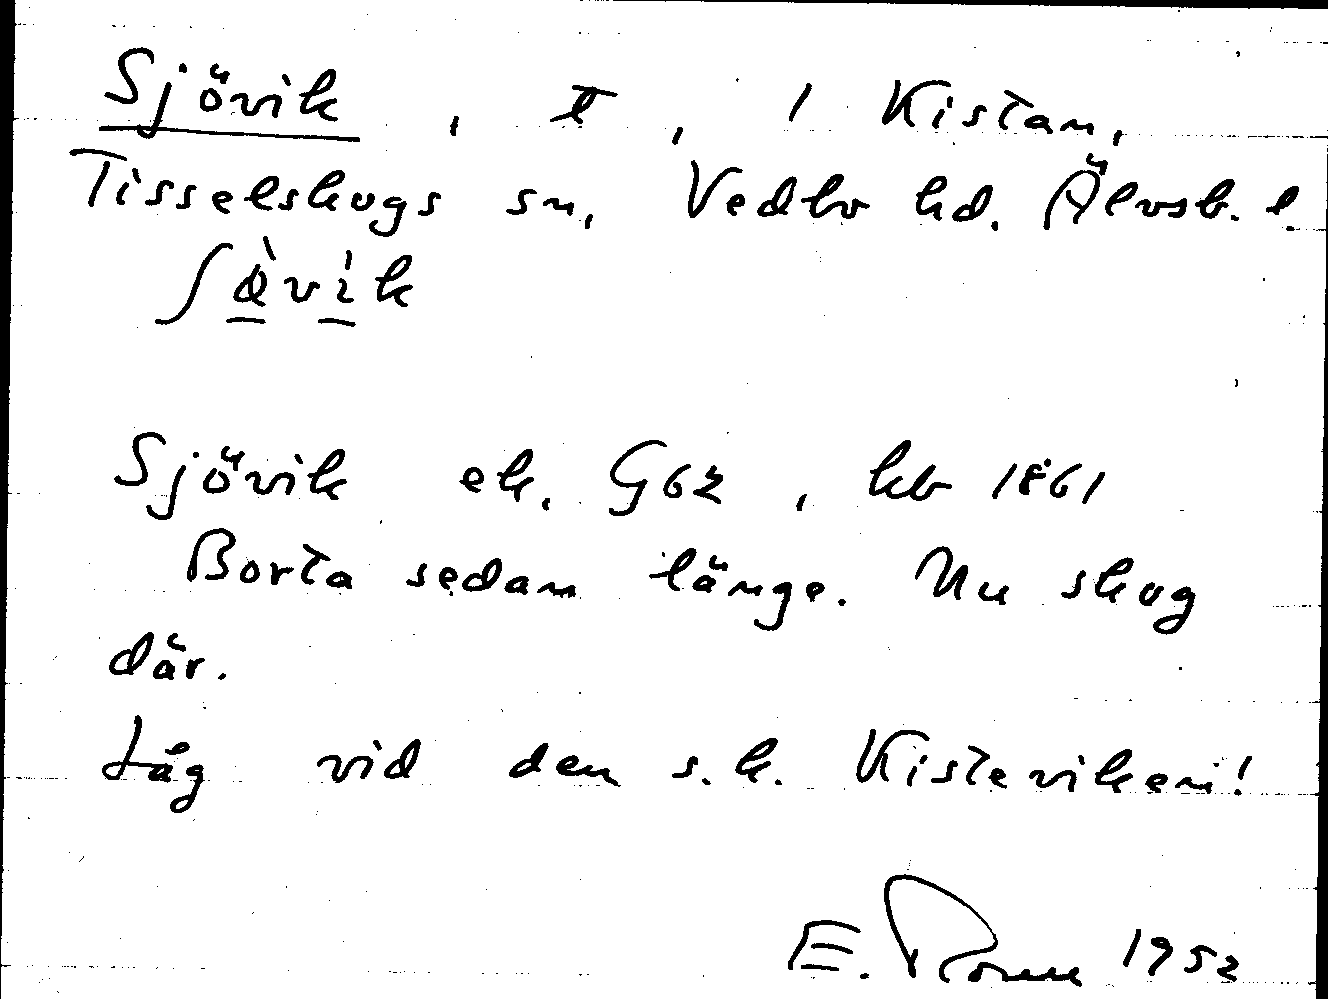 Sjövik, t, 1 Kistan,
Tisselskogs sn, Vedbo hd. Älvsb. l.
ʃø̀vìk
Sjövik ek. G62, kb 1861
Borta sedan länge. Nu skog
där.
Låg vid den s.k. Kisteviken!
E. 1952